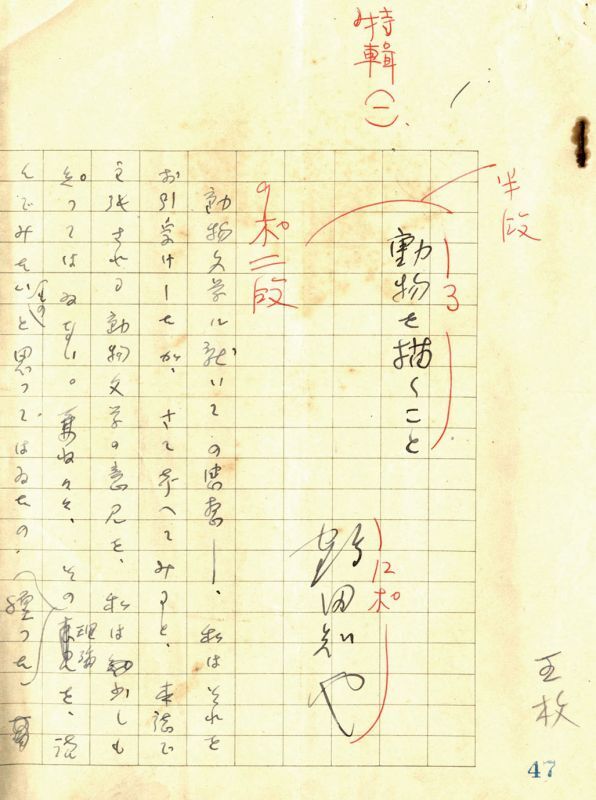 特輯(一)
半段
13
動物を描くこと
12ポ
鶴田知也
9ポ二段
動物文学に就いての感想――、私はそれを
お引受けしたが、さて考へてみると、本誌で
主張される動物文学の意見を、私は少しも
知つてはゐない。兼ね々々、その理論を、読
んでみたいと思つてはゐたの
五枚
47